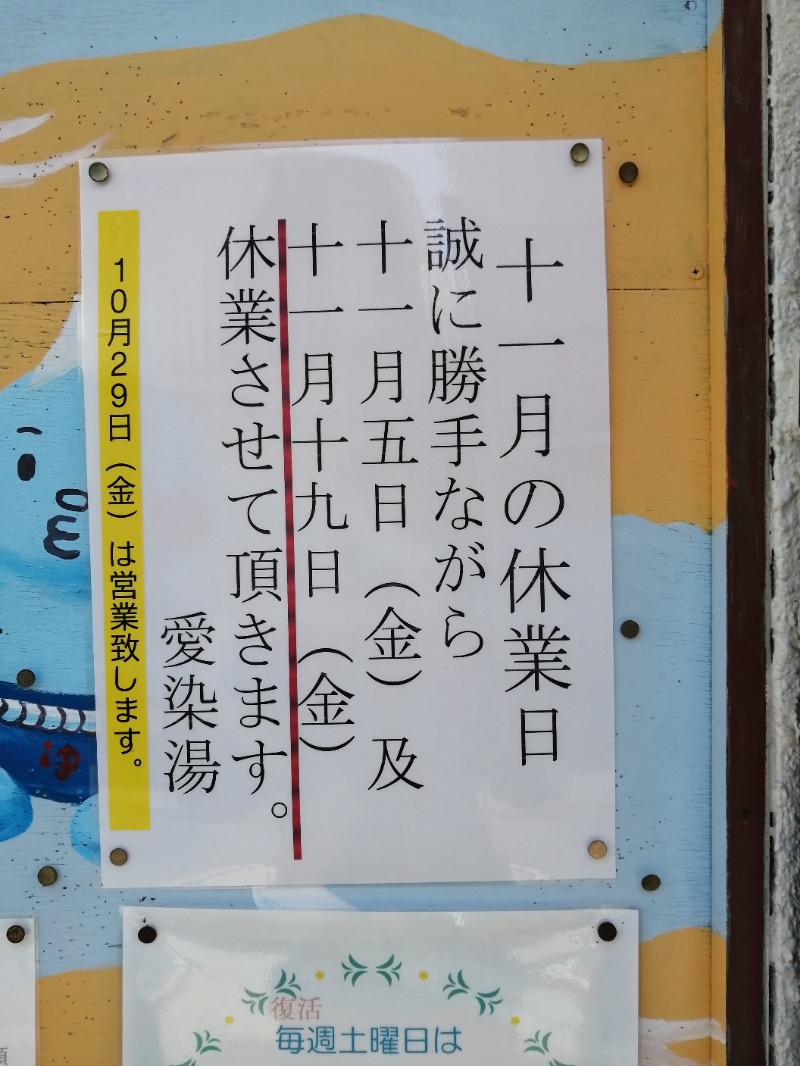 十一月の休業日
誠に勝手ながら
十一月五日（金）及
十一月十九日（金）
休業させて頂きます。
愛染湯
10月29日（金）は営業致します。
ゆ
復活
毎週土曜日は